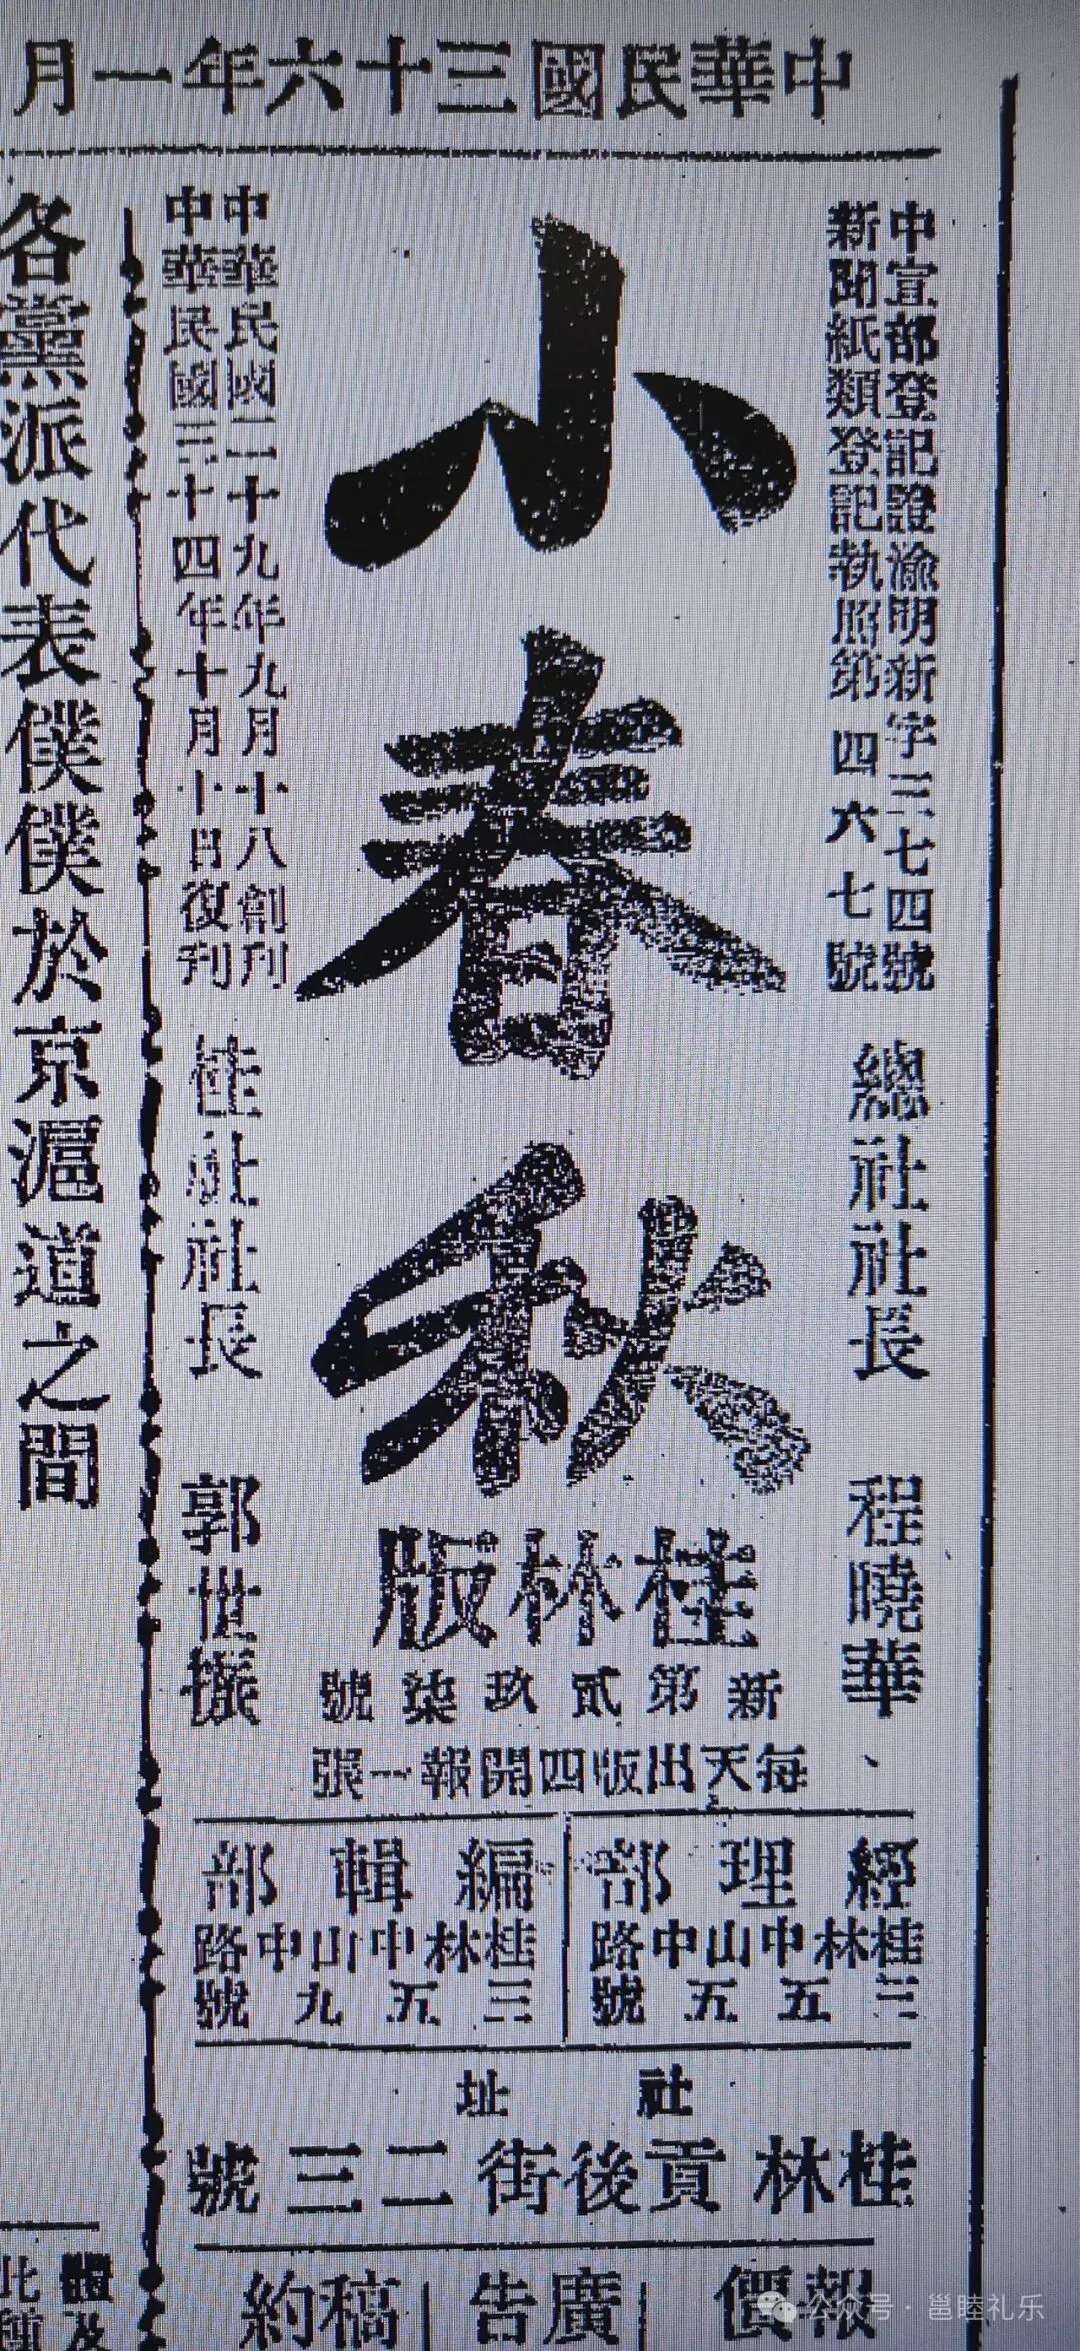 中華民國三十六年一月
中宣部登記證渝明新字三七四號
新聞紙類登記執照第四六七號
總社社長 程曉華
小春秋
桂林版
新第貳玖柒號
每天出版四開報一張
中華民國二十九年九月十八創刊
中華民國三十四年十月十日復刊
桂社社長 郭世撰
經理部
桂林中山中路
三五五號
編輯部
桂林中山中路
三五九號
社址
桂林貢後街二三號
報價
廣告
稿約
各黨派代表僕僕於京滬道之間
公众号·邕睦礼乐